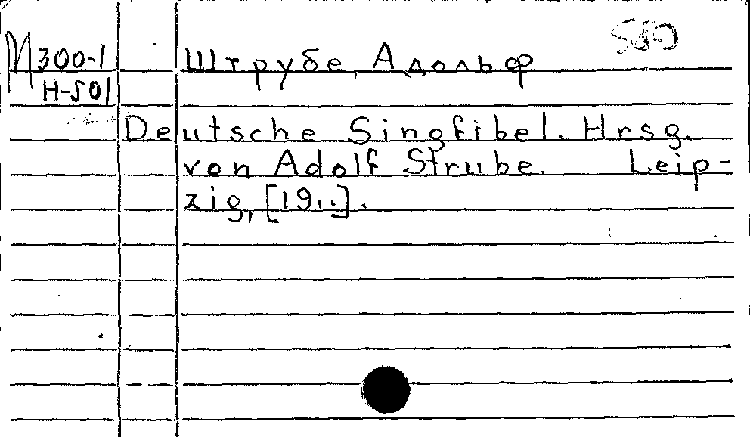 М300-1
Н-501
Штрубе, Адольф
Deutsche Singfibel. Hrsg.
von Adolf Strube. Leip-
zig, [19..].